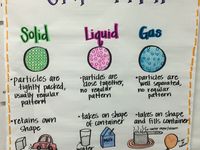 Solid Liquid Gas
• particles are tightly packed, usually regular pattern
• particles are close together, no regular pattern
• particles are well separated, no regular pattern
• retains own shape
• takes on shape of container
• takes on shape and fills container
milk